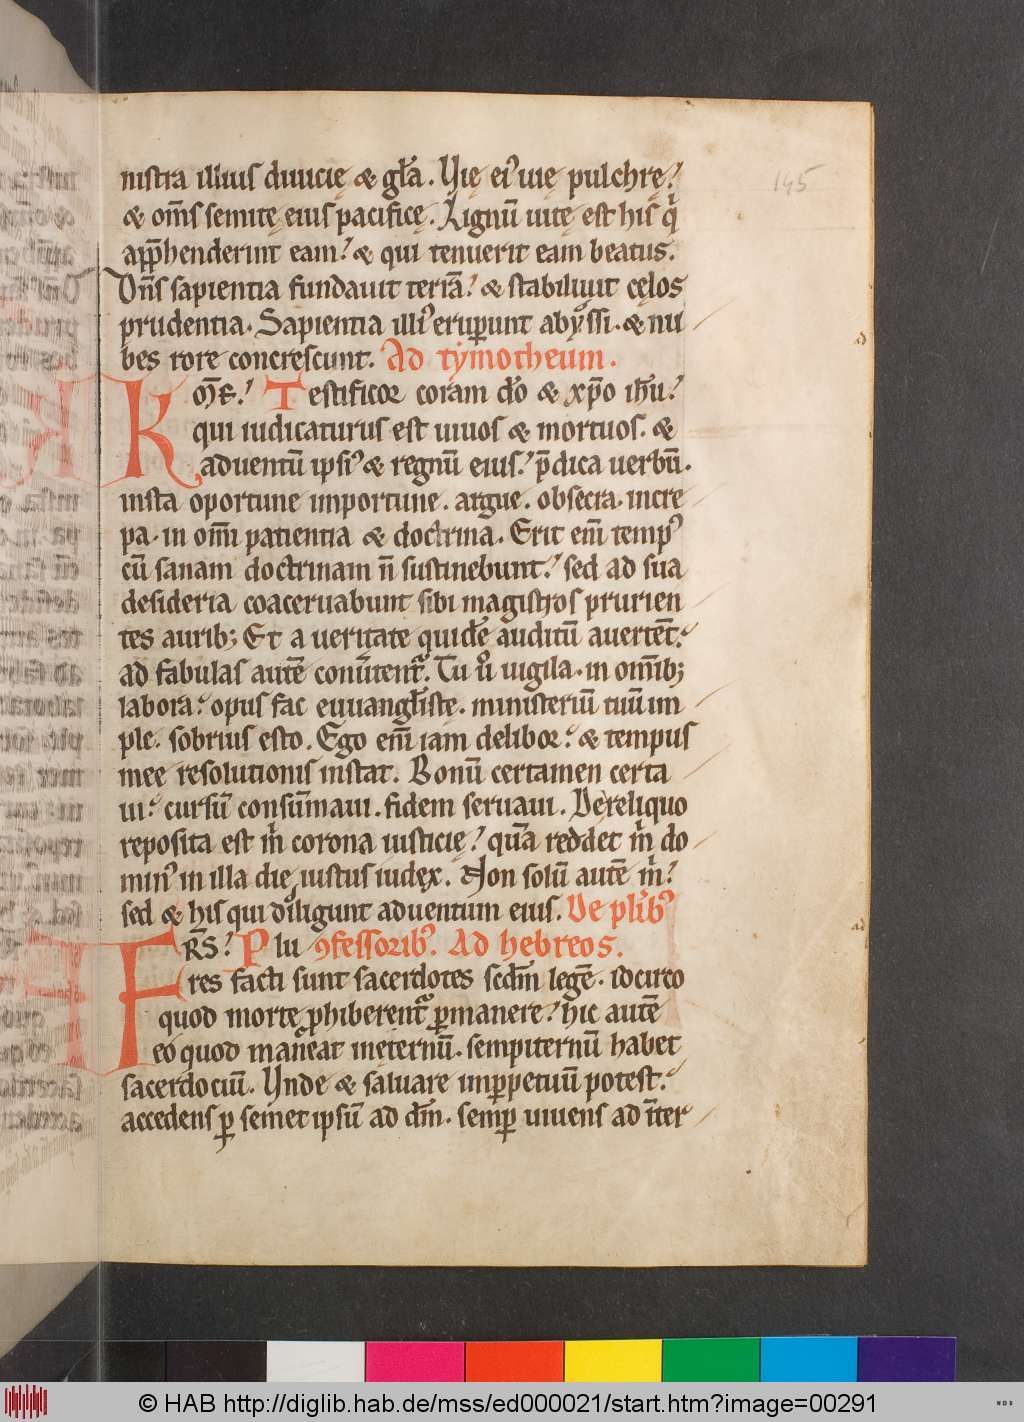 nistra illius diuicię & gl̄a. Vię ei᷒ uię pulchrę.
& om̄s semitę eius pacificę. Lignū uitę est his q̇
app̄henderint eam. & qui tenuerit eam beatus.
Dn̄s sapientia fundauit terrā. & stabiliuit cęlos
prudentia. Sapientia illi᷒ eruꝑunt abyssi. & nu
bes rore concrescunt. Ad tymotheum.
Kōe. Testificor coram dō & xp̄o ih̄u.
qui iudicaturus est uiuos & mortuos. &
aduentū ipsi᷒ & regnū eius. p̄dica uerbū.
insta oportune importune. argue. obsecra. incre
pa. in om̄i patientia & doctrina. Erit eni̅ temp᷒
cū sanam doctrinam n̄ sustinebunt. sed ad sua
desideria coaceruabunt sibi magistros prurien
tes aurib; Et a ueritate quidē auditū auertēt.
ad fabulas autē conūtent᷑. Tu u͛o uigila. in om̄ib;
labora. opus fac euuangl̄istę. ministeriū tuū im
ple. sobrius esto. Ego eni̅ iam delibor. & tempus
meę resolutionis instat. Bonū certamen certa
ui. cursū consūmaui. fidem seruaui. Dereliquo
reposita est m̊ corona iusticię. quā reddet m̊ do
min᷒ in illa die iustus iudęx. Non solū autē m̊.
sed & his qui diligunt aduentum eius. De plib᷒
FRS. Plu ꝯfessorib᷒. Ad hebreos.
res facti sunt sacerdotes scdm̄ legē. idcirco
quod morte ꝓhiberent᷑ ꝑmanere. hic autē
eo quod maneat inęternū. sempiternū habet
sacerdociū. Vnde & saluare inꝑpetuū potest.
accedens ꝑ semet ipsū ad dm̄. semꝑ uiuens ad īter
145
© HAB http://diglib.hab.de/mss/ed000021/start.htm?image=00291